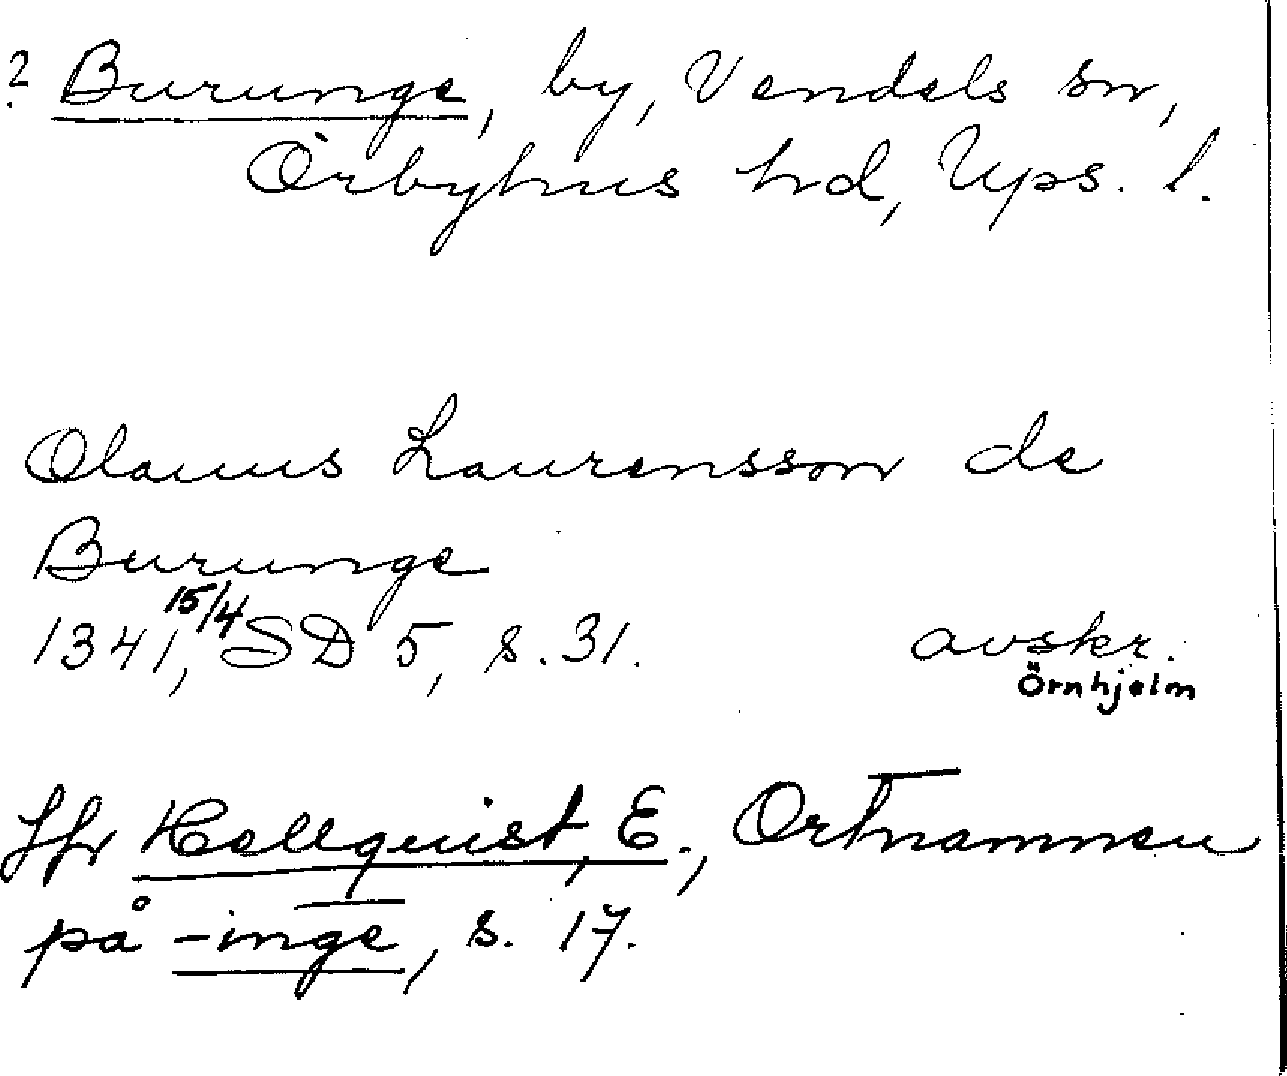 ? Burunge, by, Vendels sn,
Örbyhus hd, Ups. l.
Olauus Laurensson de
Burunge
1341, 15/4 SD 5, s. 31. avskr.
Örnhjelm
Jfr Hellquist, E., Ortnamnen
på -inge, s. 17.